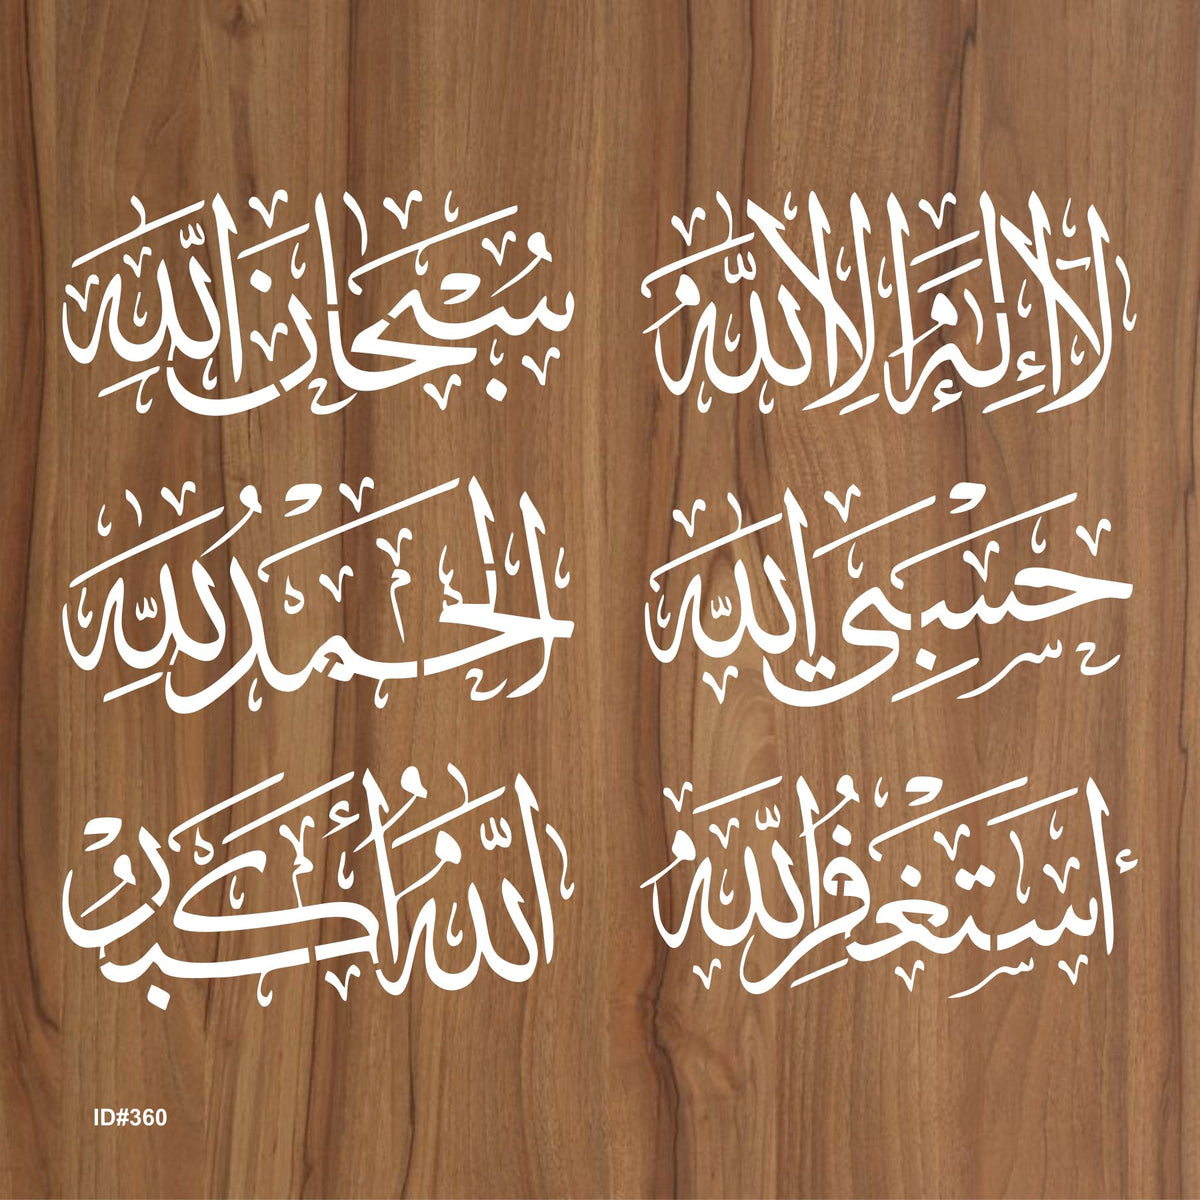 لا إله إلا الله
سُبْحَانَ اللَّهِ
حَسْبِيَ اللَّه
الحَمْدُ لِلَّهِ
أَسْتَغْفِرُ اللَّهَ
اللَّهُ أَكْبَرُ
ID#360